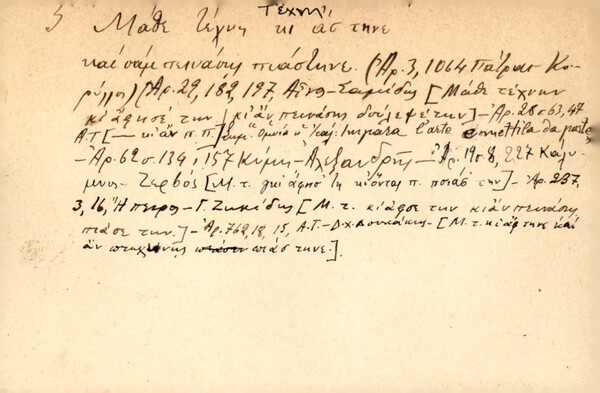 τέχνη
5 Μάθε τέχνη κι ἄς τηνε
καὶ σὰμ πεινάσῃς πιάστηνε. (Ἀρ. 3, 1064 Πάτραι Κο-
ρύλλος) (Ἀρ. 29, 189, 197, Αἶνος - Σαμίδης [Μάθε τέχνην
κι ἄφησέ την κι ἂν πεινάσῃς δούλεψέ την] - Ἀρ. 28 σ 63, 47
Α.Τ [— κι ἂν π. π.] Ὁμοία Impara l'arte e mettila da parte
- Ἀρ. 62 σ. 134, 157 Κύμη - Ἀλεξανδρῆς - Ἀρ. 19 σ. 8, 227 Καλυ-
μνος - Ζερβὸς [Μ. τ. κι ἄφησ' τη κι ὄντας π. πιάσ' την] - Ἀρ. 237,
3, 16, Ἤπειρος - Γ. Ζηκίδης [Μ. τ. κι ἄφσε την κι ἂν πεινάσῃς
πιάσε την.] - Ἀρ. 762, 18, 15, Α.Τ. - Δ.Χ. Δουκάκης - [Μ. τ. κι ἄφ τηνε καὶ
ἂν πτωχύνῃς πιάσ τηνε].